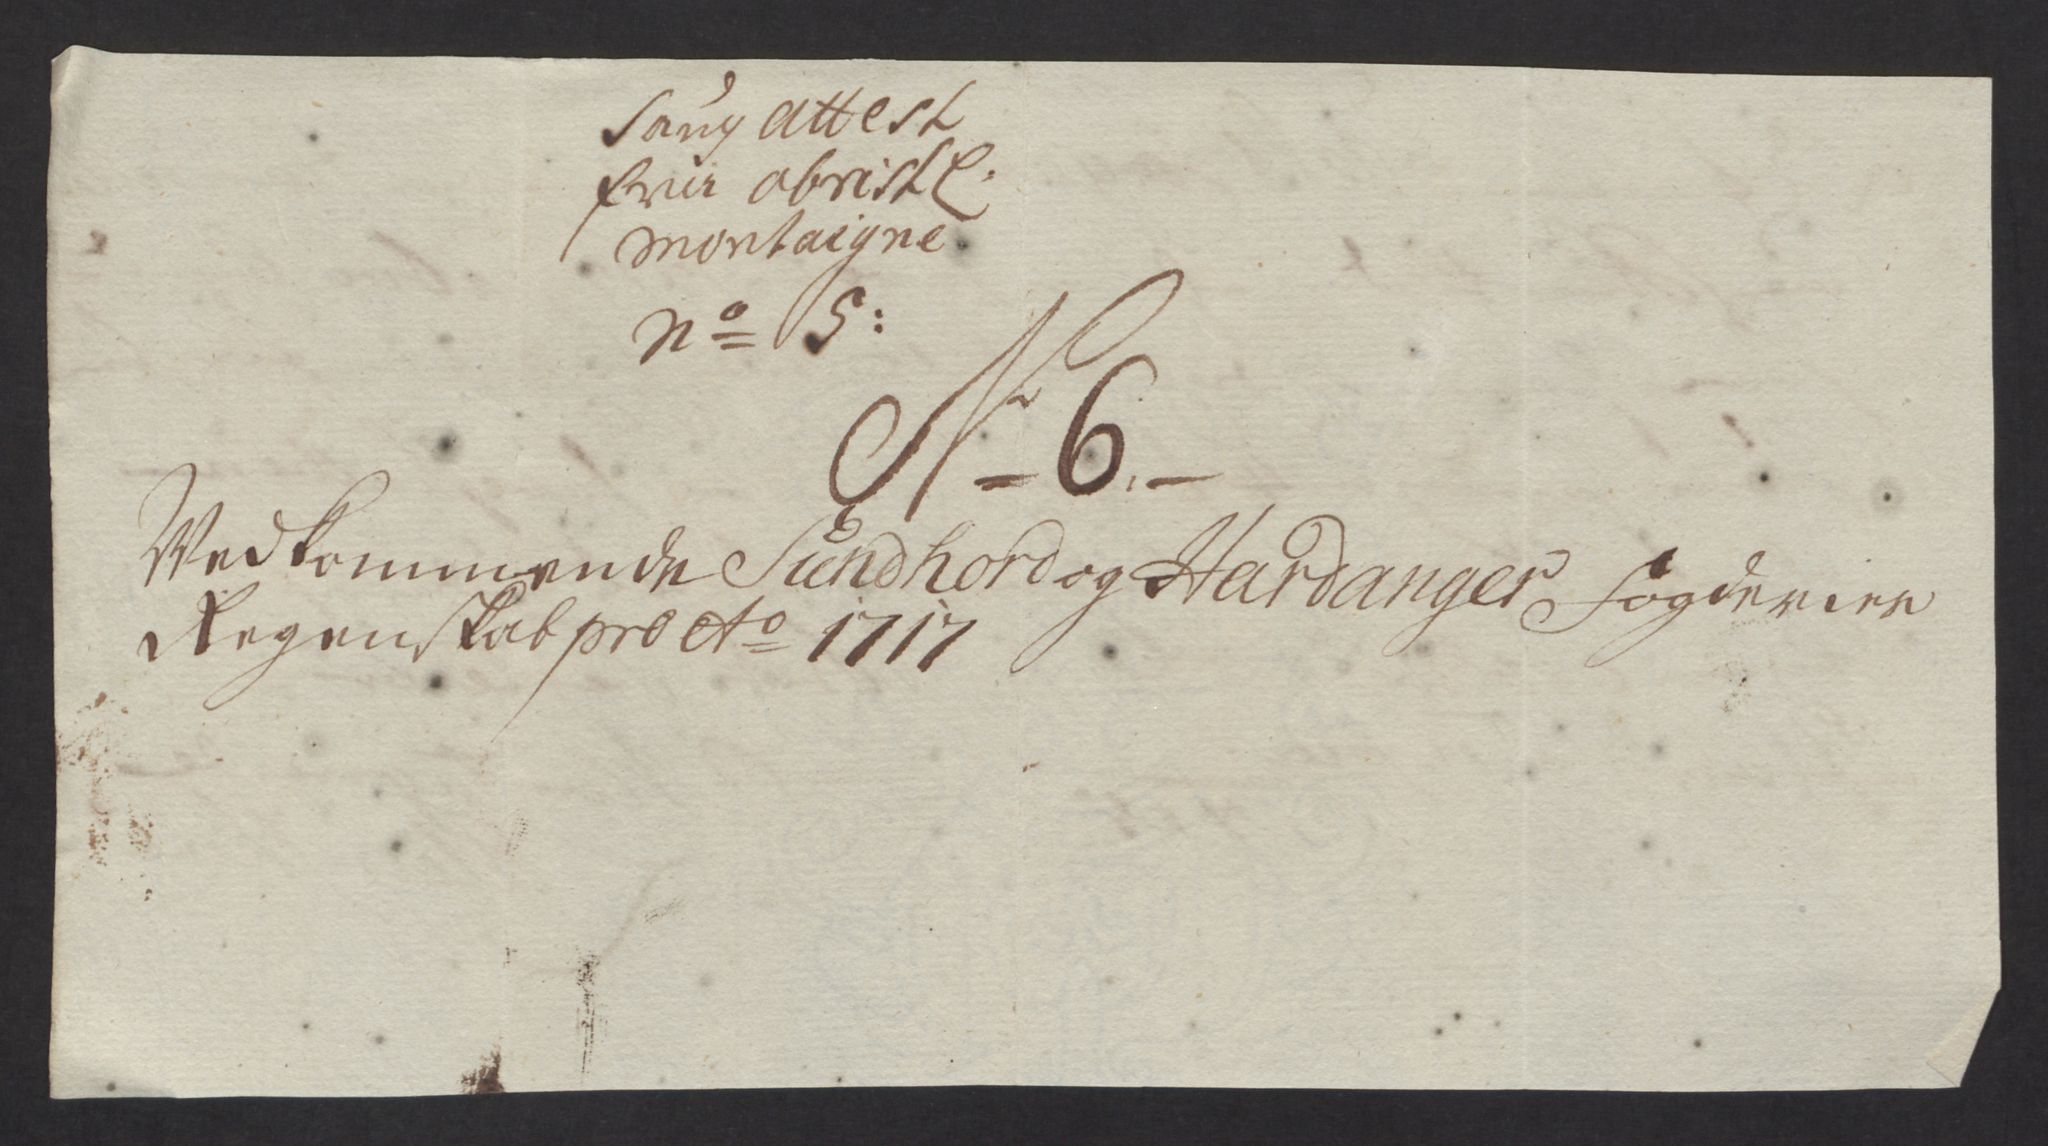 Saug attest
frur obristl:
montaigne
No 5:
No 6.
Vedkommende Sundhord og Hardanger Fogderier
Regenskab pro Ao 1717